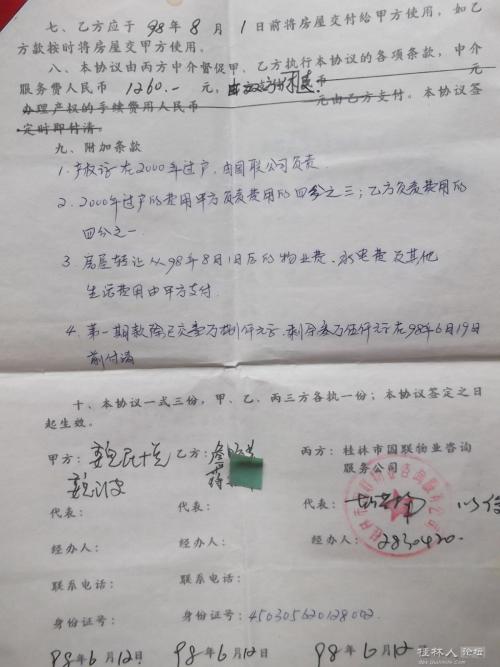 七、乙方应于98年8月1日前将房屋交付给甲方使用，如乙
方款按时将房屋交甲方使用。
八、本协议由丙方中介督促甲、乙方执行本协议的各项条款，中介
服务费人民币 1260.- 元，币 元
办理产权的手续费用人民币 元由乙方支付。本协议签
定时即付清。
九、附加条款
1. 产权证在2000年过户，由国联公司负责.
2. 2000年过户的费用甲方负责费用的四分之三；乙方负责费用的
四分之一.
3. 房屋转让从98年8月1日后的物业费、水电费及其他
生活费用由甲方支付.
4. 第一期款除已交壹万捌仟元之外，剩余叁万伍仟元在98年6月19日
前付清
十、本协议一式三份，甲、乙、丙三方各执一份；本协议签定之日
起生效。
甲方： 乙方： 丙方：桂林市国联物业咨询
服务公司
代表： 代表： 代表：
经办人： 经办人： 经办人：2830420.
联系电话： 联系电话：
身份证号： 身份证号：450305620128002
98年6月12日 98年6月12日 98年6月12日
桂林人论坛
bbs.guilinlife.com